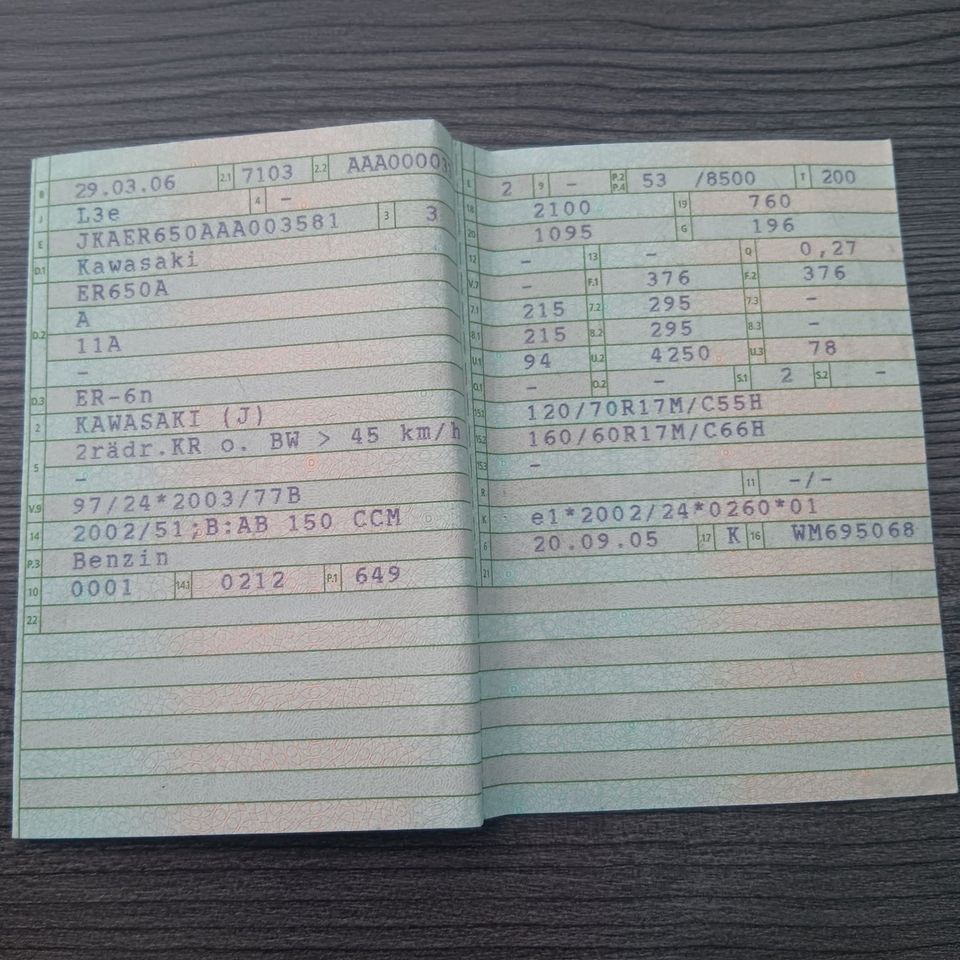 B 29.03.06 2.1 7103 2.2 AAA00003
J L3e 4 -
E JKAER650AAA003581 3 3
D.1 Kawasaki
ER650A
D.2 A
11A
-
D.3 ER-6n
2 KAWASAKI (J)
2rädr.KR o. BW > 45 km/h
5 -
V.9 97/24*2003/77B
14 2002/51;B:AB 150 CCM
P.3 Benzin
10 0001 14.1 0212 P.1 649
22
L 2 9 - P.2 P.4 53 /8500 T 200
18 2100 19 760
20 1095 G 196
12 - 13 - Q 0,27
V.7 - F.1 376 F.2 376
7.1 215 7.2 295 7.3 -
8.1 215 8.2 295 8.3 -
U.1 94 U.2 4250 U.3 78
O.1 - O.2 - S.1 2 S.2 -
15.1 120/70R17M/C55H
15.2 160/60R17M/C66H
15.3 -
R 11 -/-
K e1*2002/24*0260*01
6 20.09.05 17 K 16 WM695068
21